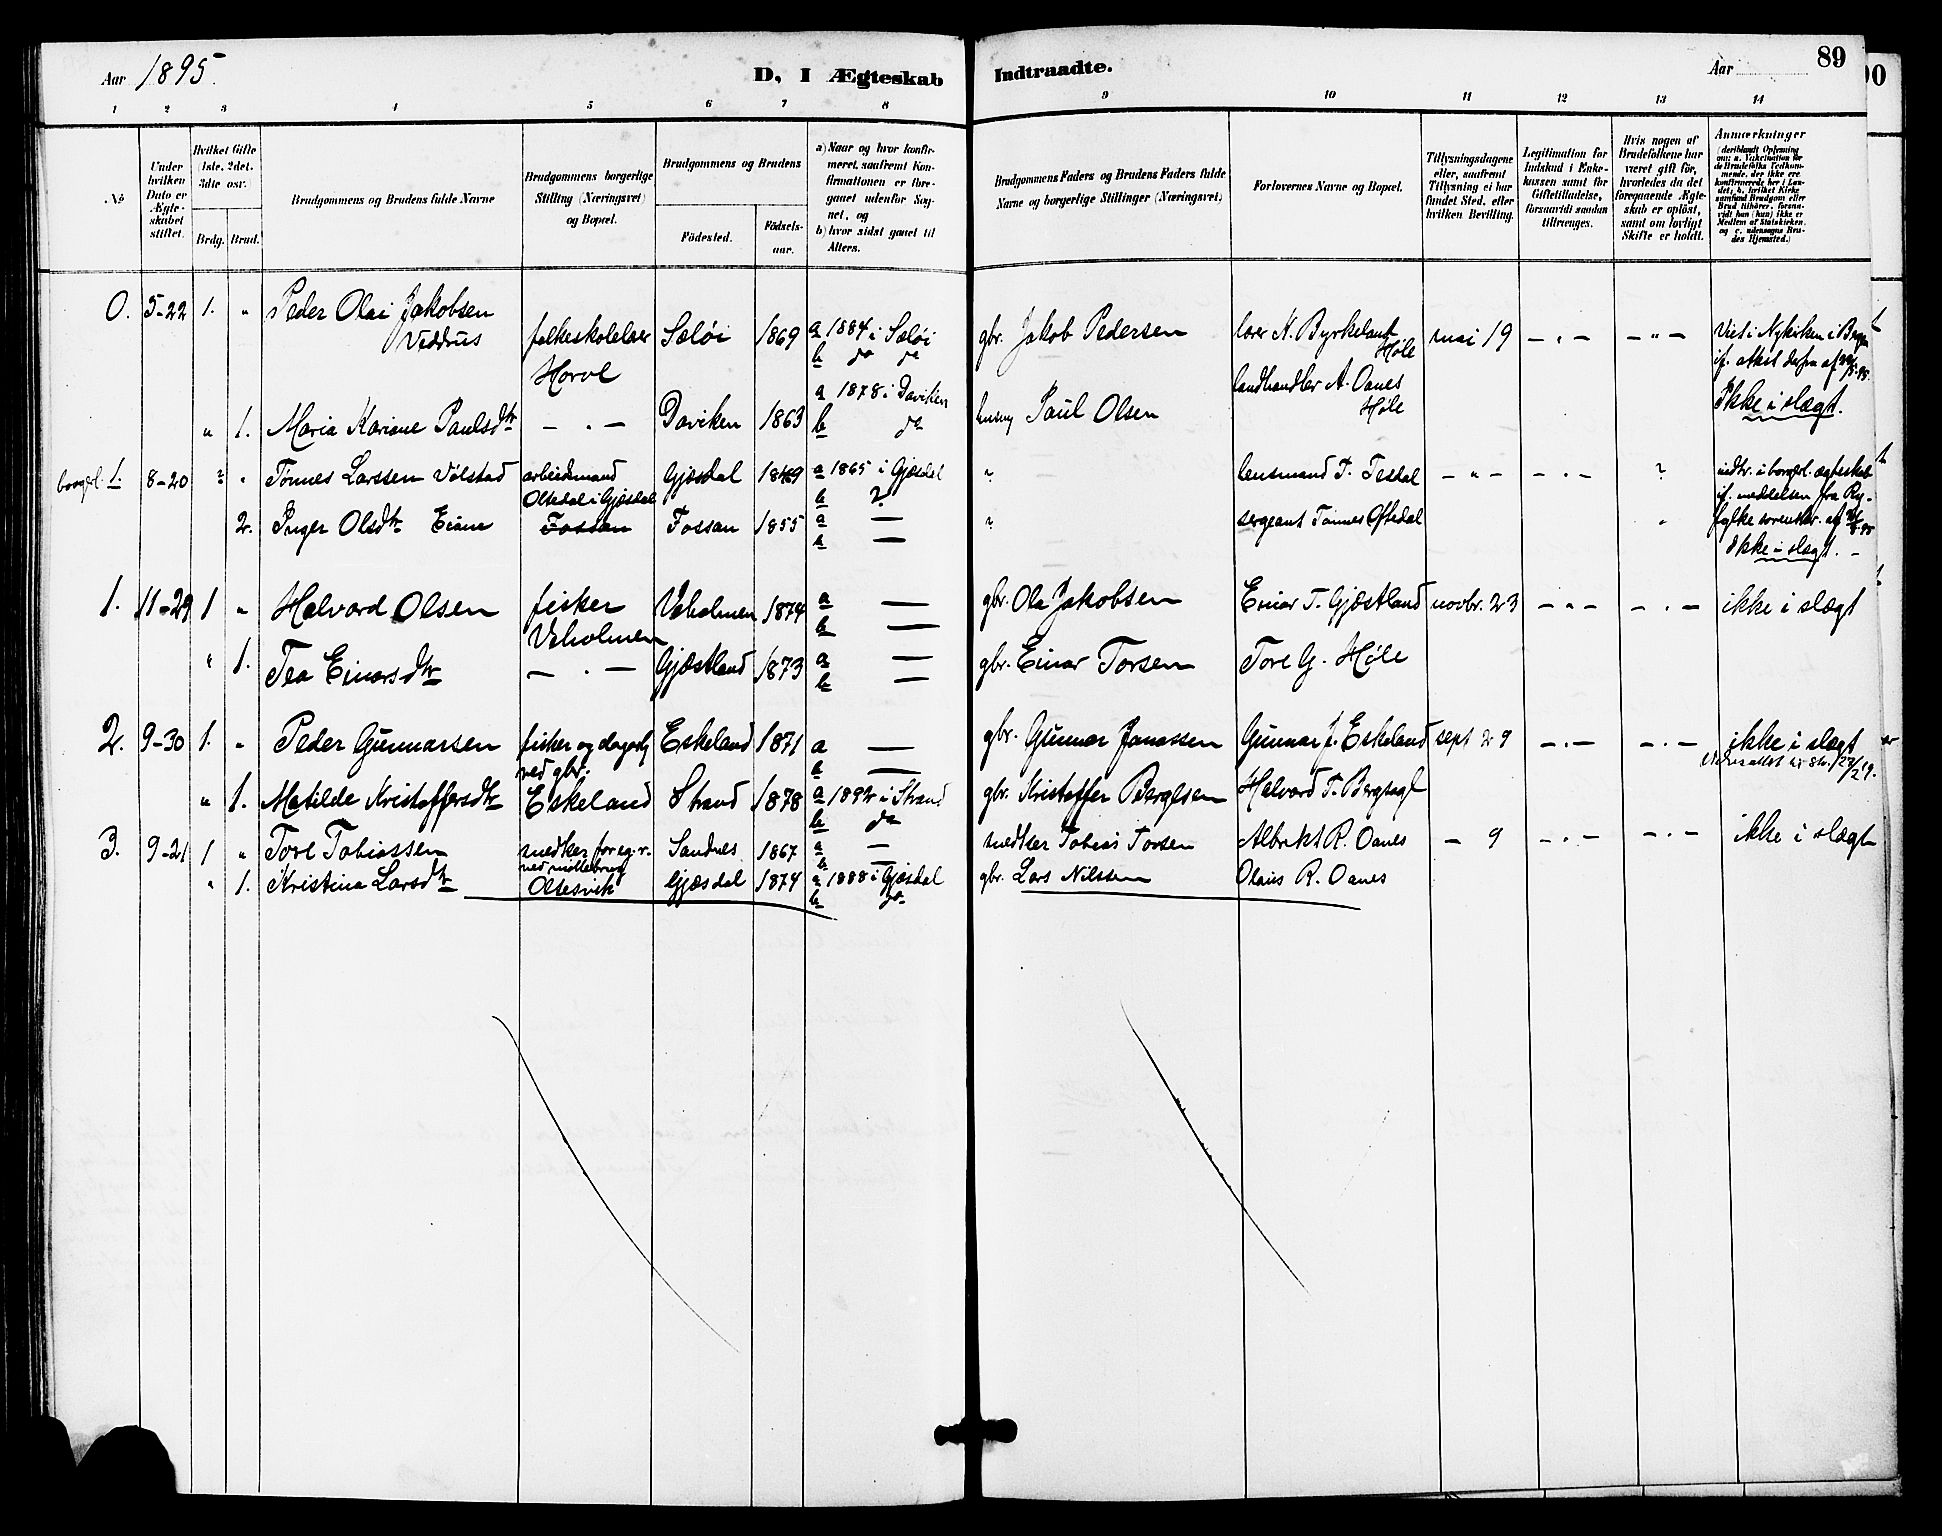 Aar 1895.
D, I Ægteskab
Indtraadte.
Aar
89
1 2 3 4 5 6 7 8 9 10 11 12 13 14
No
Under hvilken Dato er Ægteskabet stiftet.
Hvilket Gifte (1ste, 2det, 3die osv.
Brdg. Brud.
Brudgommens og Brudens fulde Navne
Brudgommens borgerlige Stilling (Næringsvei) og Bopæl.
Brudgommens og Brudens
Fødested.
Fødselsaar.
a) Naar og hvor konfirmeret, saafremt Konfirmationen er foregaaet udenfor Sognet, og
b) hvor sidst gaaet til Alters.
Brudgommens Faders og Brudens Faders fulde Navne og borgerlige Stillinger (Næringsvei)
Forlovernes Navne og Bopæl.
Tillysningsdagene eller, saafremt Tillysning ei har fundet Sted, efter hvilken Bevilling.
Legitimation for Indskud i Enkekassen samt for Giftetilladelse, forsaavidt saadan tiltrænges.
Hvis nogen af Brudefolkene har været gift før, hvorledes da det foregaaende Ægteskab er opløst, samt om lovligt Skifte er holdt.
Anmærkninger
0. 5-22 1. " Peder Olai Jakobsen
folkeskolelær Sæløi 1869 a 1884 i Sæløi gbr. Jakob Pedersen lærer N. Byrkeland Høle mai 19 — " — — " —
b do do
Horve
landhandler A. Oanes Høle
Ikke i slægt.
" 1. Maria Kariane Paulsdtr — " — Daviken 1863 a 1878 i Daviken Paul Olsen
b do
borgerl. 1. 8-20 ? " Tønnes Larssen Vølstad arbeidsmand Gjæsdal 1849 a 1865 i Gjæsdal ? lensmand T. Tesdal — " — — " — ? indtr. i borgerl. ægteskab
Oltedal i Gjæsdal b ?
2. Inger Olsdtr Eiane Fossan Fossan 1855 a — ? sergeant Tønnes Oftedal
b —
Ikke i slægt. —
1. 11-29 1 " Halvard Olsen fisker Veholmen 1874 a — gbr. Ola Jakobsen Einar T. Gjæstland novbr. 23 — " — — " — ikke i slægt
Veholmen b —
" 1. Tea Einarsdtr — " — Gjæstland 1873 a — gbr. Einar Torsen Tore G. Høle
b —
2. 9-30 1. " Peder Gunnarsen fisker og dagarb Eskeland 1871 a — gbr. Gunnar Jonassen Gunnar J. Eskeland sept 29 — " — — " — ikke i slægt
ved gbr. b —
" 1. Matilde Kristoffersdtr Eskeland Strand 1878 a 1892 i Strand gbr. Kristoffer Bergesen Halvard T. Bergsagl
b do
3. 9-21 1 " Tore Tobiassen snedker for eg. r. Sandnes 1867 a — snedker Tobias Torsen Albrikt R. Oanes — 9 — " — — " — ikke i slægt
ved møllebrug b —
" 1. Kristina Larsdtr Oltesvik Gjæsdal 1874 a 1888 i Gjæsdal gbr. Lars Nilssen Olaus R. Oanes
b do